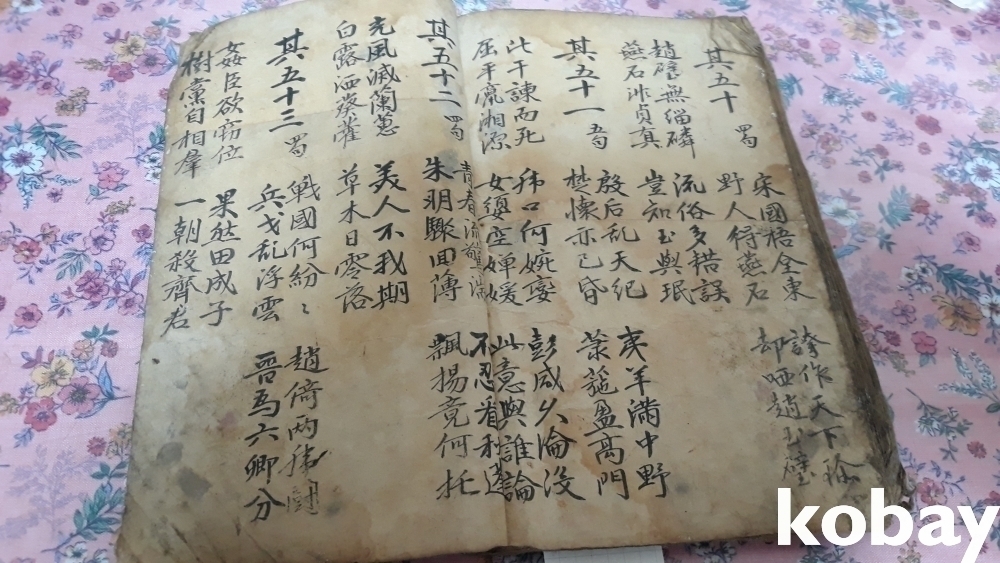 其五十 蜀
宋國梧全東
野人得燕石
誇作天下珍
却哂趙王璧
趙璧無緇磷
燕石非貞真
流俗多錯誤
豈知玉與珉
其五十一 蜀
殷后乱天紀
楚懷亦已昏
夷羊滿中野
菉葹盈高門
比干諫而死
屈平竄湘源
虎口何婉孌
女嬃空嬋媛
彭咸久淪没
此意與誰論
其五十二 蜀
青春流驚湍
朱明驟回薄
不忍看秋蓬
飄揚竟何托
光風滅蘭蕙
白露洒葵藿
美人不我期
草木日零落
其五十三 蜀
戰國何紛〻
兵戈乱浮雲
趙倚兩虎鬪
晉為六卿分
姦臣欲窃位
樹黨自相羣
果然田成子
一朝殺齊君
kobay